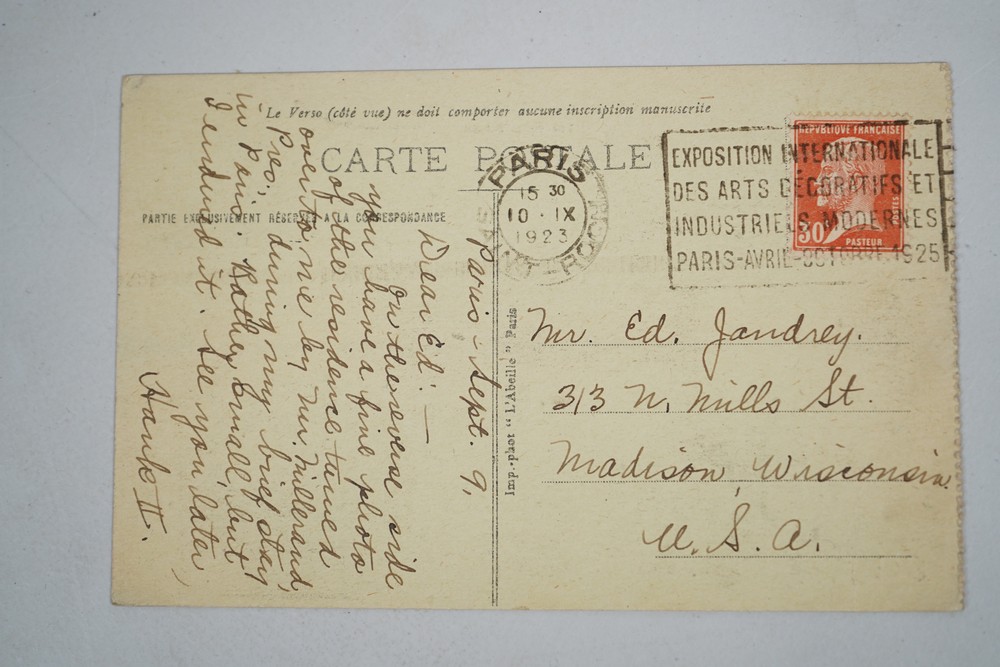 Le Verso (côté vue) ne doit comporter aucune inscription manuscrite
CARTE POSTALE
PARTIE EXCLUSIVEMENT RÉSERVÉE A LA CORRESPONDANCE
Paris - Sept. 9.
Dear Ed: —
On the reverse side
you have a fine photo
of the residence turned
over to me by Mr. Millerand,
Pres., during my brief stay
in Paris. Rather small, but
I endured it. See you later,
Hank II.
Imp.-phot "L'Abeille" Paris
PARIS
15 30
10 · IX
1923
EXPOSITION INTERNATIONALE
DES ARTS DÉCORATIFS ET
INDUSTRIELS MODERNES
PARIS-AVRIL-OCTOBRE 1925
REPVBLIQVE FRANÇAISE
POSTES
30
PASTEUR
Mr. Ed. Jandrey.
313 N. Mills St.
Madison, Wisconsin.
U. S. A.